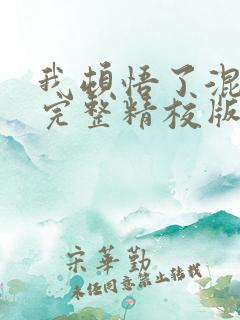 我頓悟了混
完整精校版
宋華勤
未任同意禁止转载